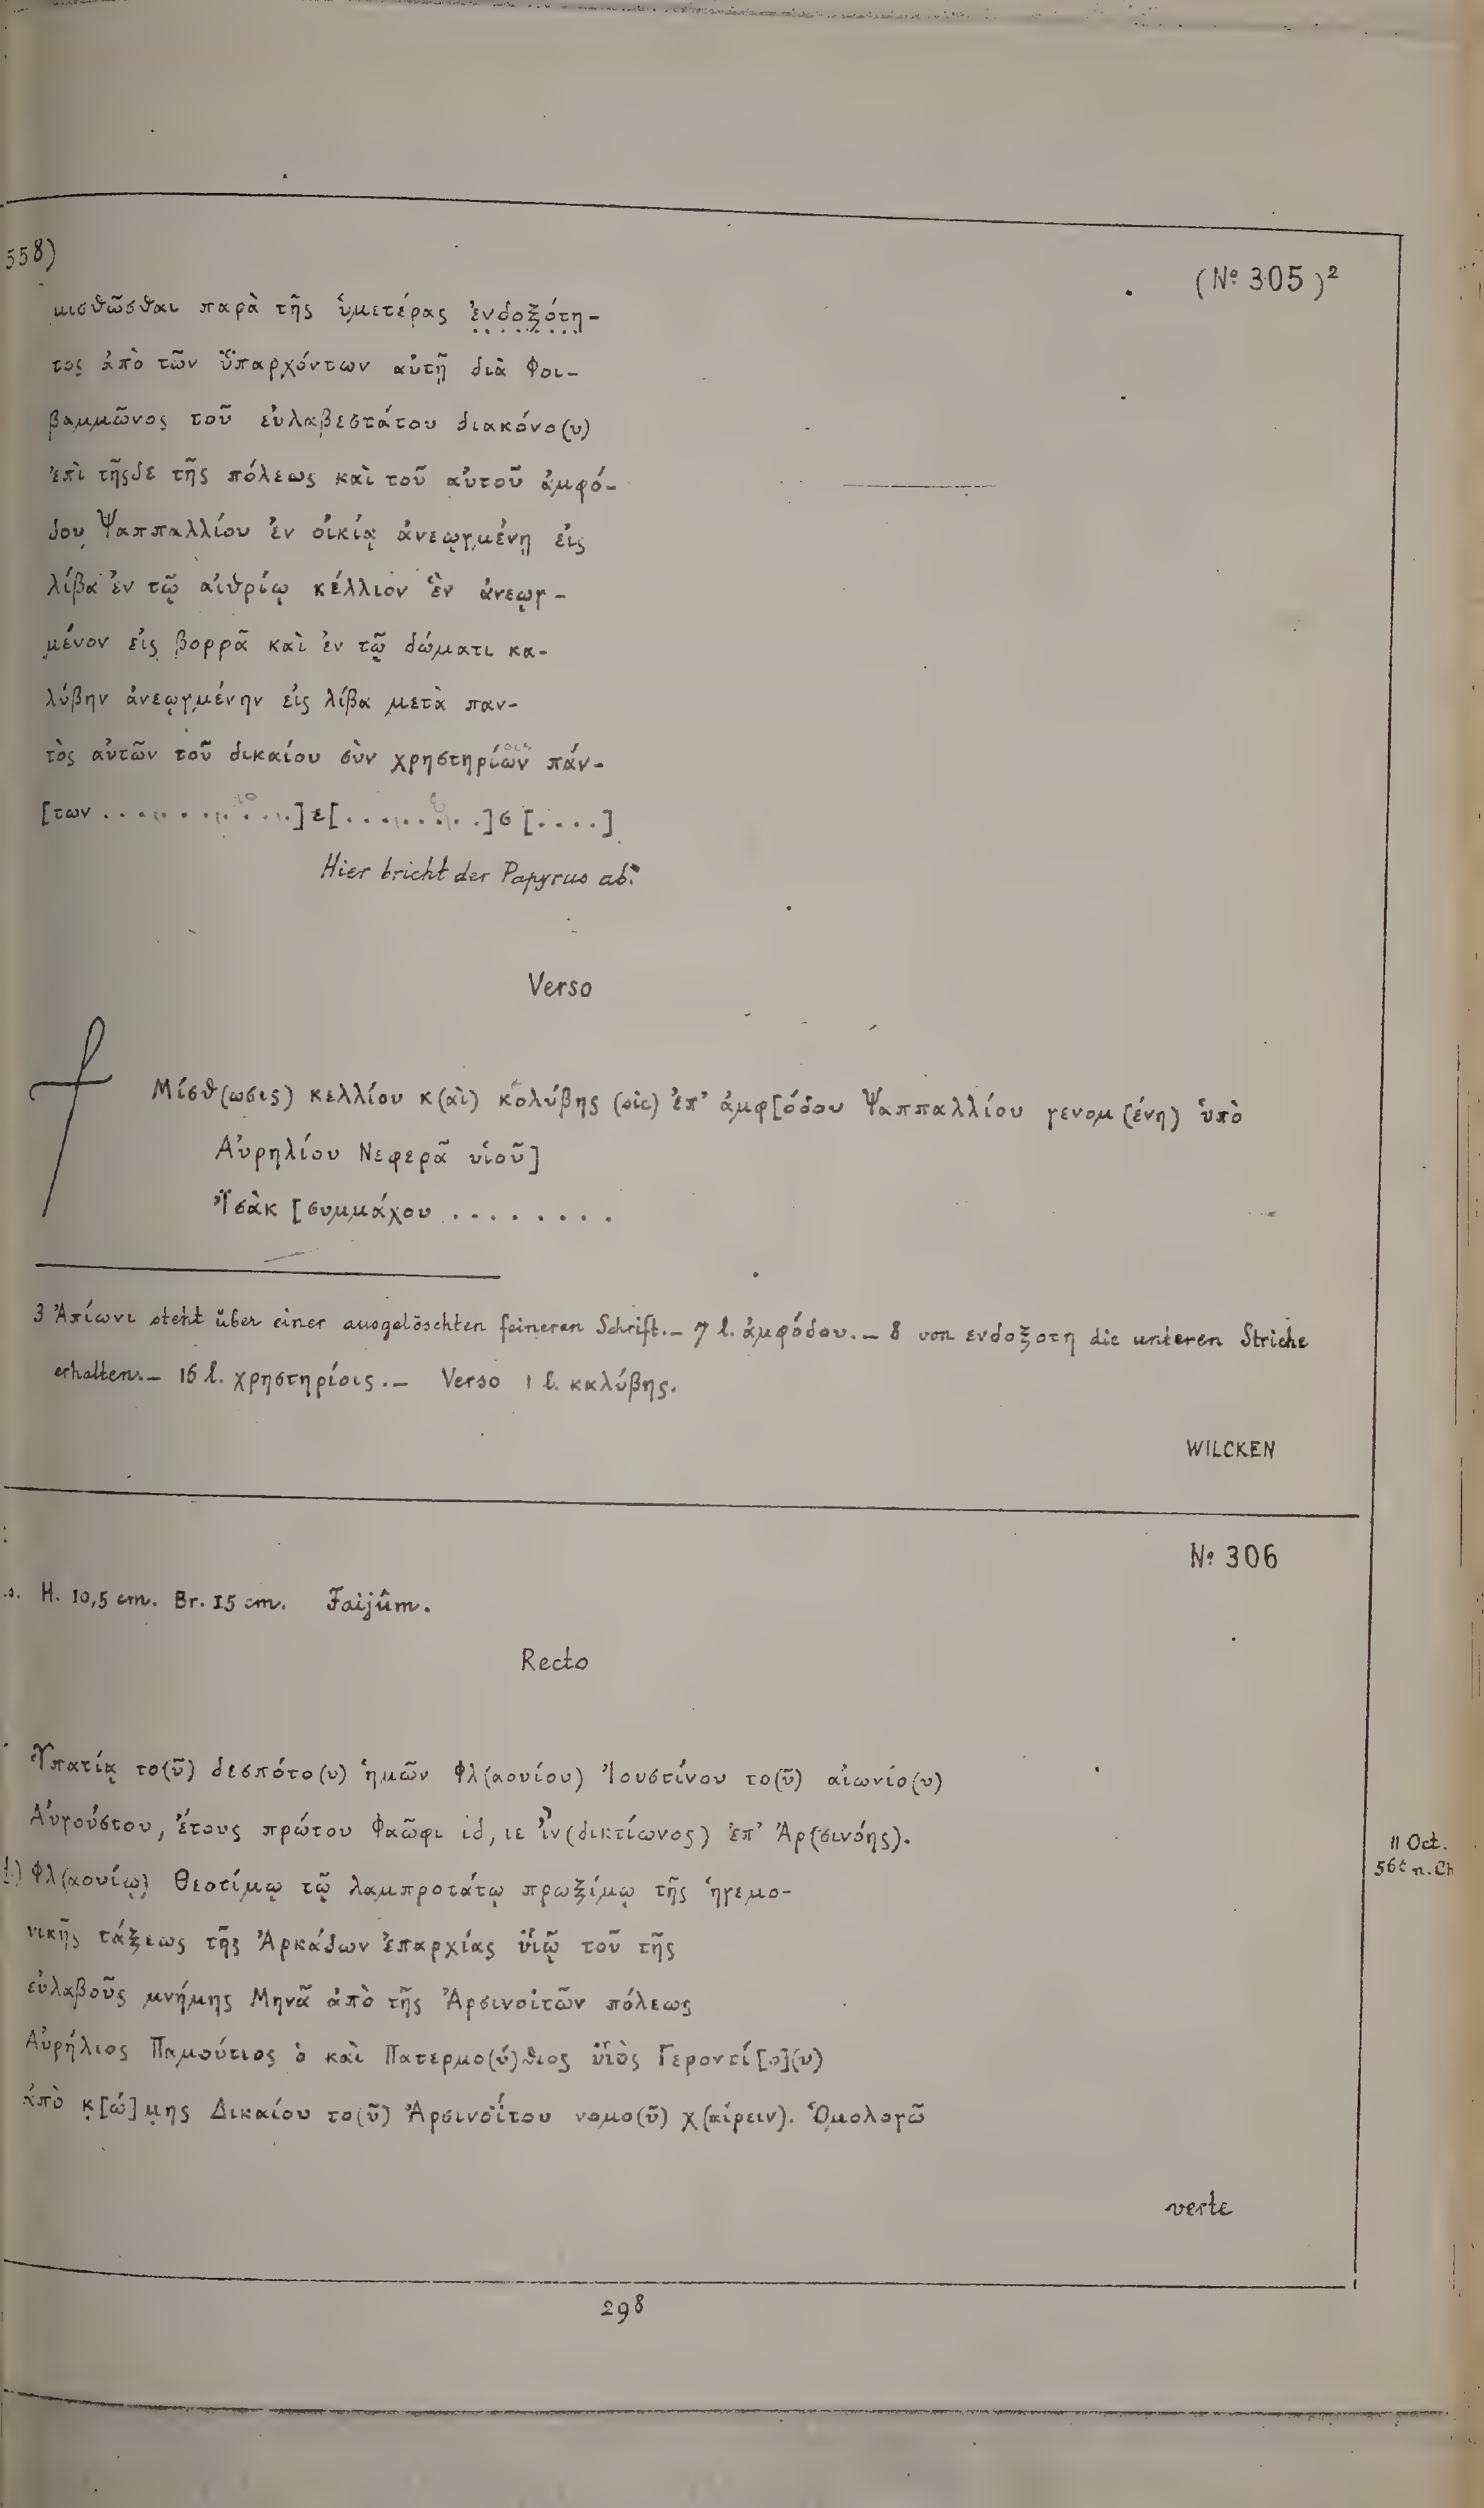 558)
(№ 305)²
μισθῶσθαι παρὰ τῆς ὑμετέρας ἐ̣ν̣δ̣ο̣ξ̣ό̣τ̣η̣-
τος ἀπὸ τῶν ὕπαρχόντων αὐτῇ διὰ Φοι-
βαμμῶνος τοῦ εὐλαβεστάτου διακόνο(υ)
ἐπὶ τῆςδε τῆς πόλεως καὶ τοῦ αὐτοῦ ἀμφό-
δου Ψαππαλλίου ἐν οἰκίᾳ ἀνεῳγμένῃ εἰς
λίβα ἐν τῷ αἰθρίῳ κέλλιον ἓν ἀνεῳγ-
μένον εἰς βορρᾶ καὶ ἐν τῷ δώματι κα-
λύβην ἀνεῳγμένην εἰς λίβα μετὰ παν-
τὸς αὐτῶν τοῦ δικαίου σὺν χρηστηρίων πάν-
[των . . . . . . . . . . . .]ε[. . . . . . . . .]σ[. . . .]
Hier bricht der Papyrus ab.
Verso
Μίσθ(ωσις) κελλίου κ(αὶ) κολύβης (sic) ἐπ' ἀμφ[όδου Ψαππαλλίου γενομ(ένη) ὑπὸ
Αὐρηλίου Νεφερᾶ υἱοῦ]
Ἰσὰκ [συμμάχου . . . . . . . .
3 Ἀπίωνι steht über einer ausgelöschten feineren Schrift. — 7 l. ἀμφόδου. — 8 von ενδοξοτη die unteren Striche
erhalten. — 16 l. χρηστηρίοις. — Verso 1 l. καλύβης.
WILCKEN
№ 306
H. 10,5 cm. Br. 15 cm. Faijûm.
Recto
Ὑπατίᾳ το(ῦ) δεσπότο(υ) ἡμῶν Φλ(αουίου) Ἰουστίνου το(ῦ) αἰωνίο(υ)
Αὐγούστου, ἔτους πρώτου Φαῶφι ιδ, ιε ἰν(δικτίωνος) ἐπ' Ἀρ(σινόης).
11 Oct.
n. Ch
Φλ(αουίῳ) Θεοτίμῳ τῷ λαμπροτάτῳ πρωξίμῳ τῆς ἡγεμο-
νικῆς τάξεως τῆς Ἀρκάδων ἐπαρχίας ὑἱῷ τοῦ τῆς
εὐλαβοῦς μνήμης Μηνᾶ ἀπὸ τῆς Ἀρσινοϊτῶν πόλεως
Αὐρήλιος Παμούτιος ὁ καὶ Πατερμο(ύ)θιος ὑἱὸς Γεροντί[ο](υ)
ἀπὸ κ̣[ώ]μ̣ης Δικαίου το(ῦ) Ἀρσινοΐτου νομο(ῦ) χ(αίρειν). Ὁμολογῶ
verte
298